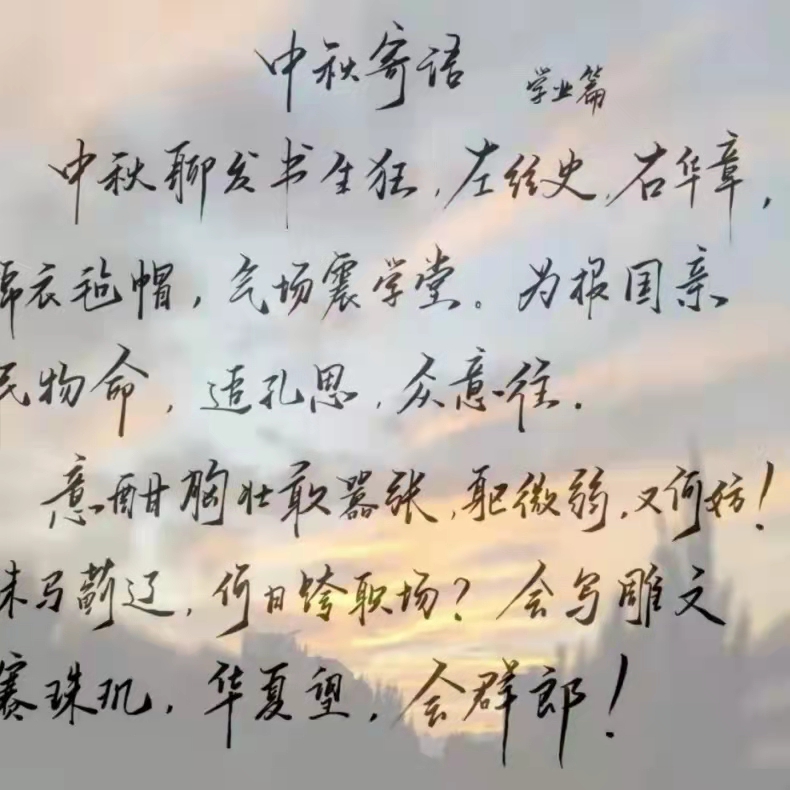 中秋寄语 学业篇
中秋聊发书生狂，左经史，右华章，
锦衣毡帽，气场震学堂。为报国亲
民物命，追孔思，众意往.
意酣胸壮敢嚣张，耻微弱，又何妨！
秣马蓟辽，何日跨职场？会写雕文
赛珠玑，华夏望，会群郎！